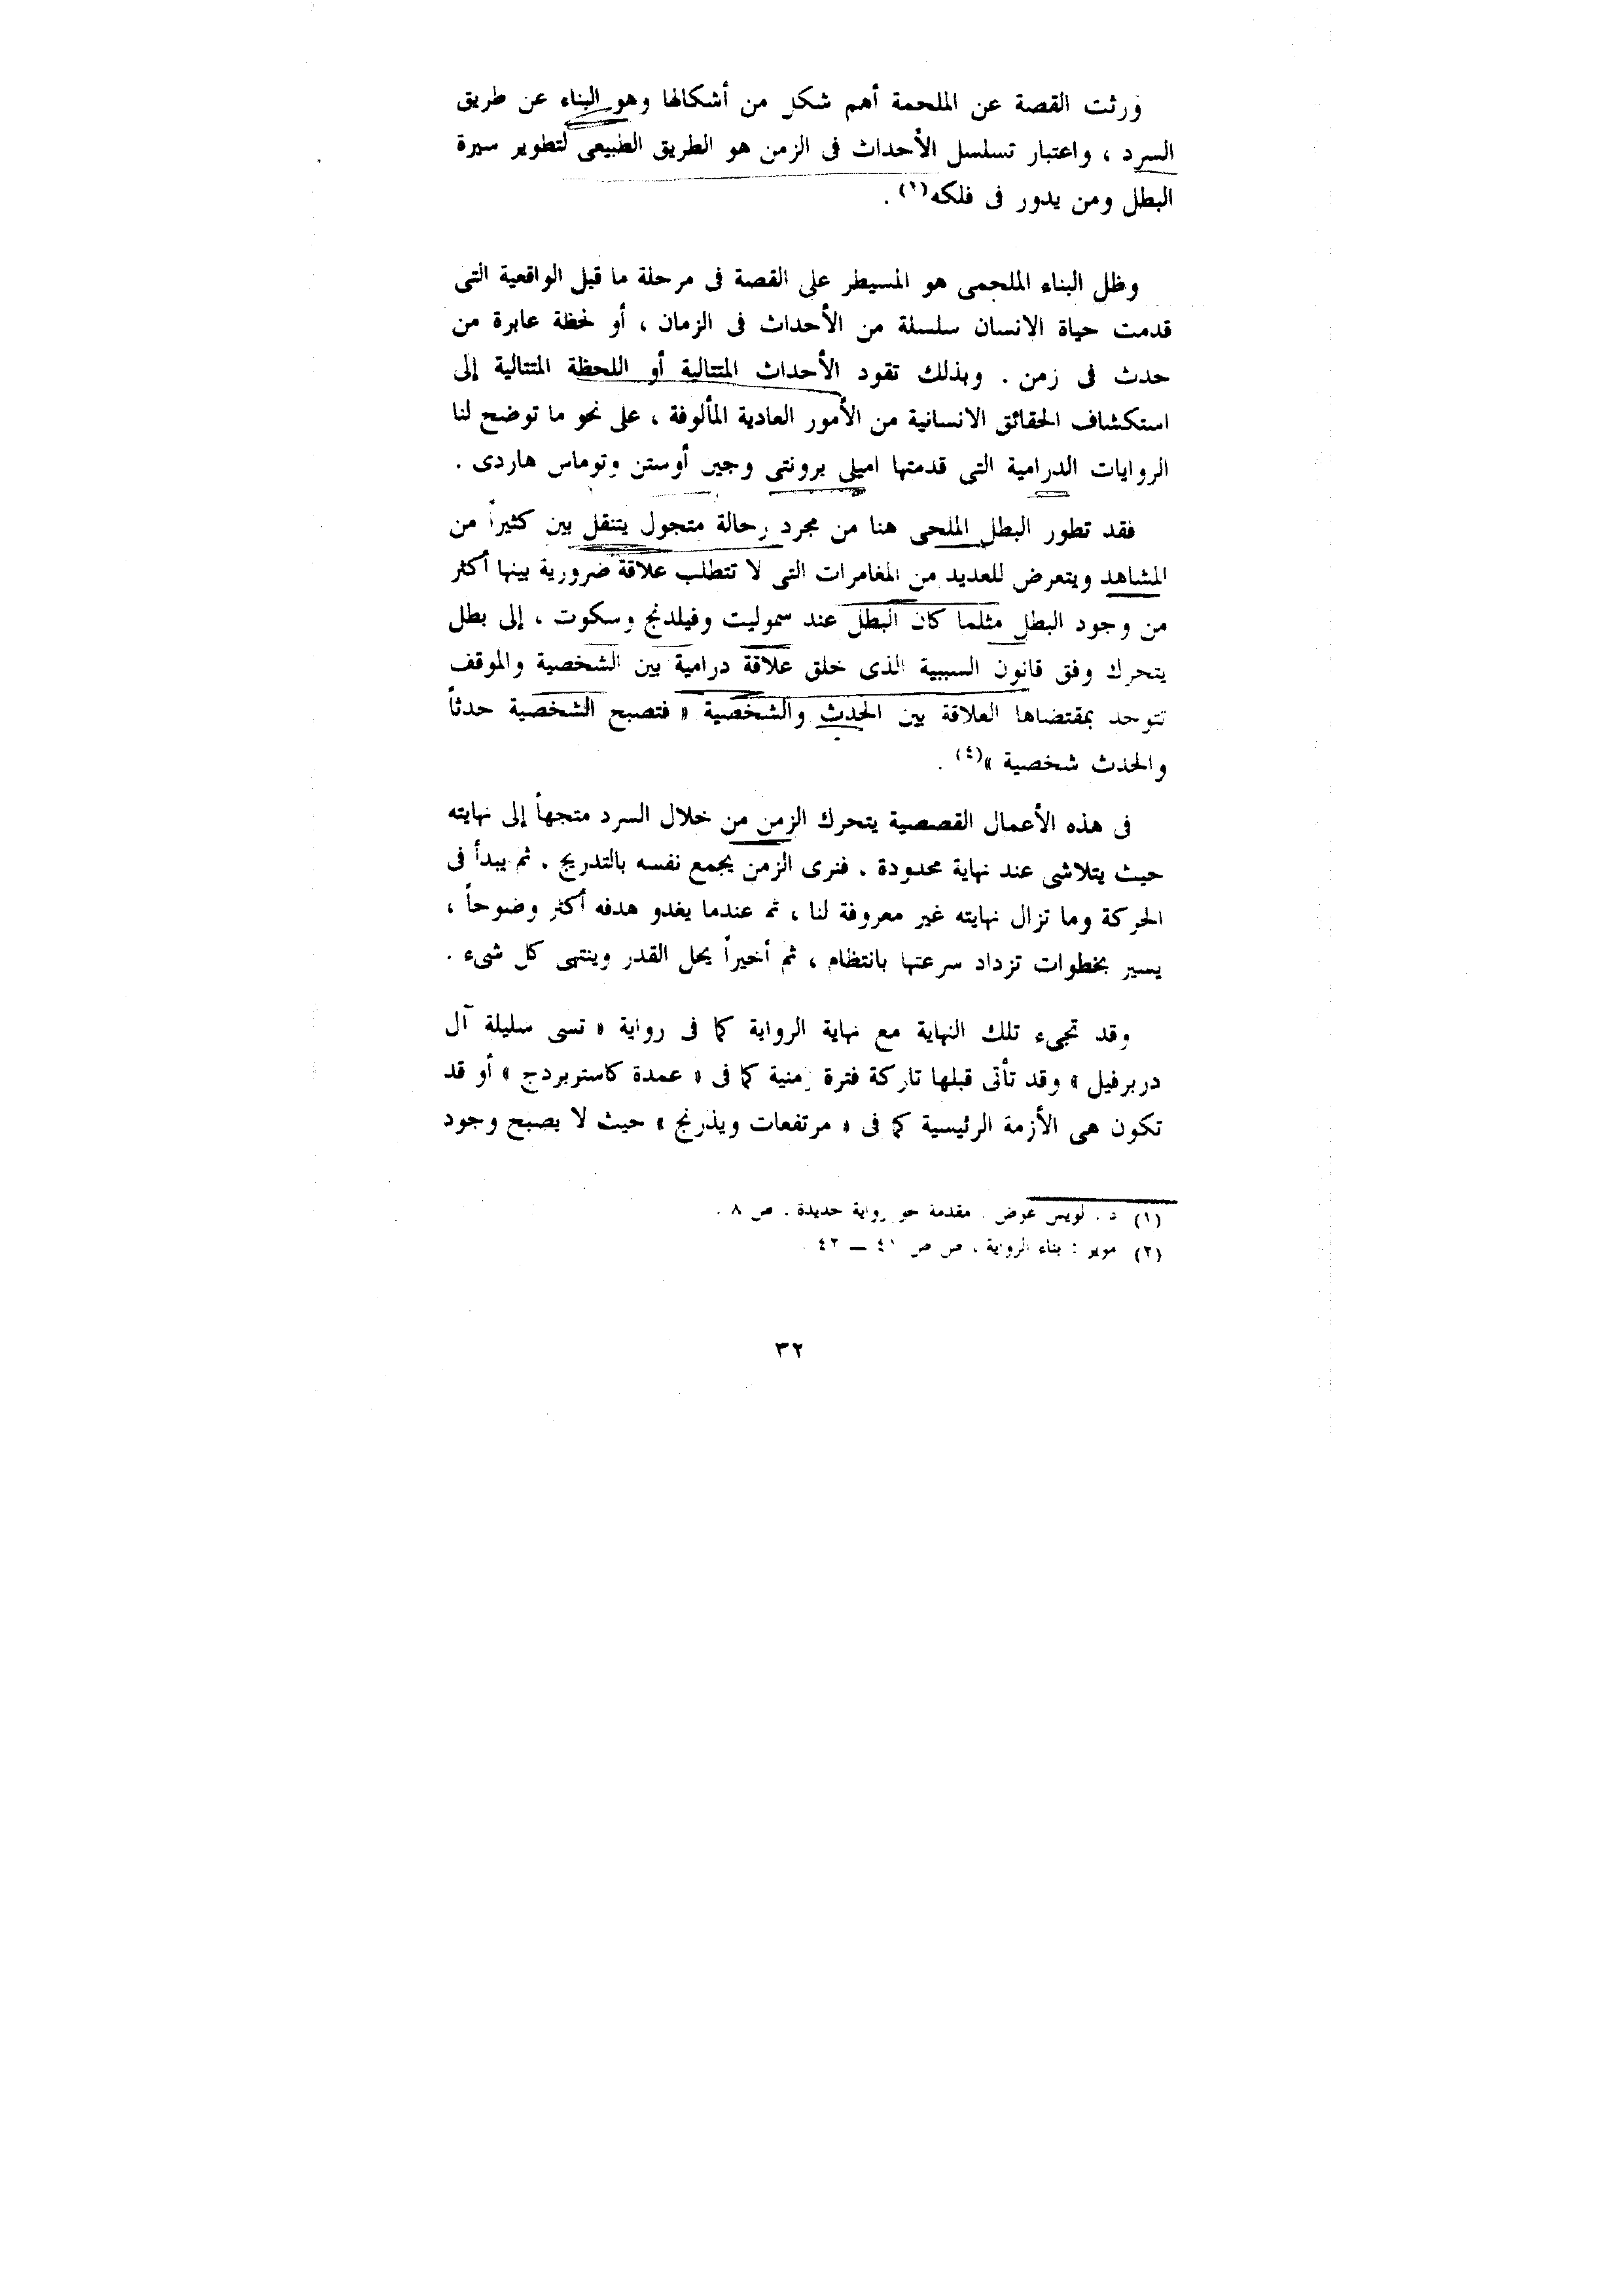 ورثت القصة عن الملحمة أهم شكل من أشكالها وهو البناء عن طريق
السرد ، واعتبار تسلسل الأحداث فى الزمن هو الطريق الطبيعى لتطوير سيرة
البطل ومن يدور فى فلكه(١) .
وظل البناء الملحمى هو المسيطر على القصة فى مرحلة ما قبل الواقعية التى
قدمت حياة الانسان سلسلة من الأحداث فى الزمان ، أو لحظة عابرة من
حدث فى زمن . وبذلك تقود الأحداث المتتالية أو اللحظة المتتالية إلى
استكشاف الحقائق الانسانية من الأمور العادية المألوفة ، على نحو ما توضح لنا
الروايات الدرامية التى قدمتها اميلى برونتى وجين أوستن وتوماس هاردى .
فقد تطور البطل الملحى هنا من مجرد رحالة متجول يتنقل بين كثيراً من
المشاهد ويتعرض للعديد من المغامرات التى لا تتطلب علاقة ضرورية بينها أكثر
من وجود البطل مثلما كان البطل عند سموليت وفيلدنج وسكوت ، إلى بطل
يتحرك وفق قانون السببية الذى خلق علاقة درامية بين الشخصية والموقف
تتوحد بمقتضاها العلاقة بين الحدث والشخصية « فتصبح الشخصية حدثاً
والحدث شخصية »(٤) .
فى هذه الأعمال القصصية يتحرك الزمن من خلال السرد متجهاً إلى نهايته
حيث يتلاشى عند نهاية محدودة . فنرى الزمن يجمع نفسه بالتدريج . ثم يبدأ فى
الحركة وما تزال نهايته غير معروفة لنا ، ثم عندما يغدو هدفه أكثر وضوحاً ،
يسير بخطوات تزداد سرعتها بانتظام ، ثم أخيراً يحل القدر وينتهى كل شىء .
وقد تجىء تلك النهاية مع نهاية الرواية كما فى رواية « تسى سليلة آل
دربرفيل » وقد تأتى قبلها تاركة فترة زمنية كما فى « عمدة كاستربردج » أو قد
تكون هى الأزمة الرئيسية كما فى « مرتفعات ويذرنج » حيث لا يصبح وجود
(١) د . لويس عوض . مقدمة نحو رواية جديدة . ص ٨ .
(٢) موير : بناء الرواية ، ص ص ٤١ — ٤٢ .
٣٢